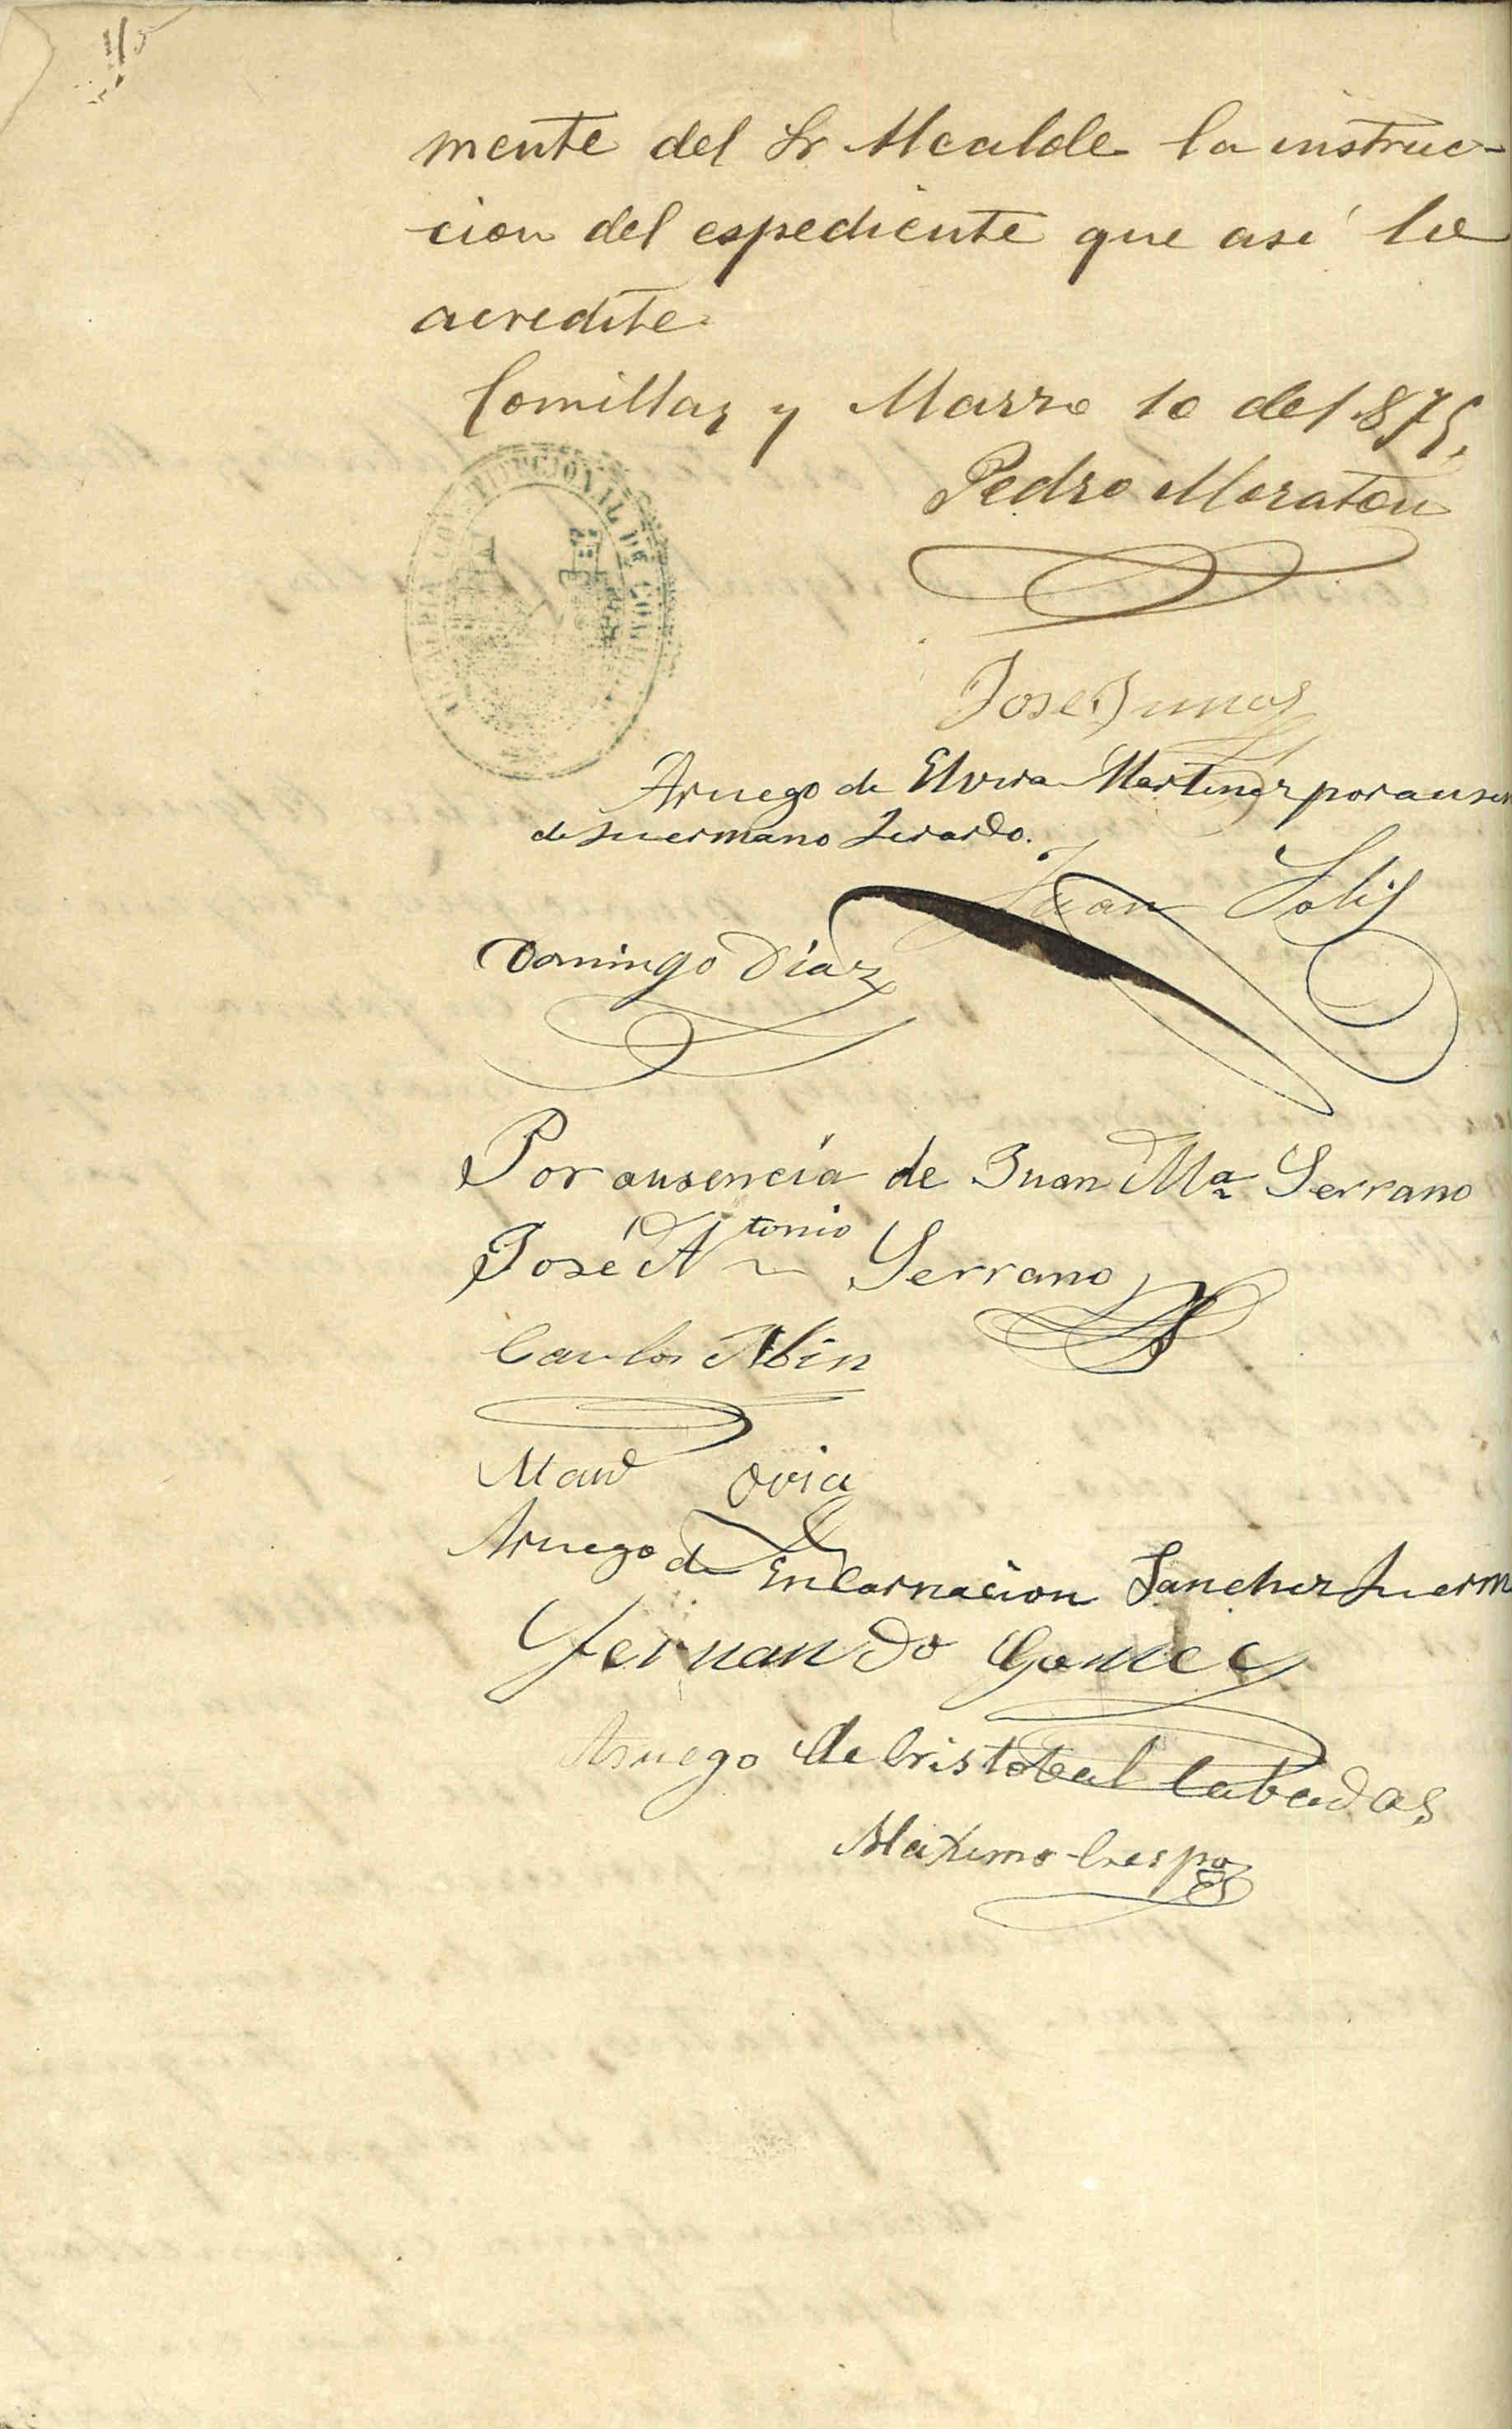 mente del Sr Alcalde la instruc-
cion del espediente que asi lo
acredite
Comillas y Marzo 10 de 1875,
Pedro Moraton
CONSTITUCIONAL DE COMILLAS
Jose
Aruego de Elvira Martinez por ausen
de su ermano Gerardo.
Juan Solis
Domingo Diaz
Por ausencia de Juan Mª Serrano
José Antonio Serrano
Carlos Abin
Aruego de Encarnacion Sanchez su erm
Fernando Gomez
Aruego de Cristobal Cabadas
Maximo Crespo